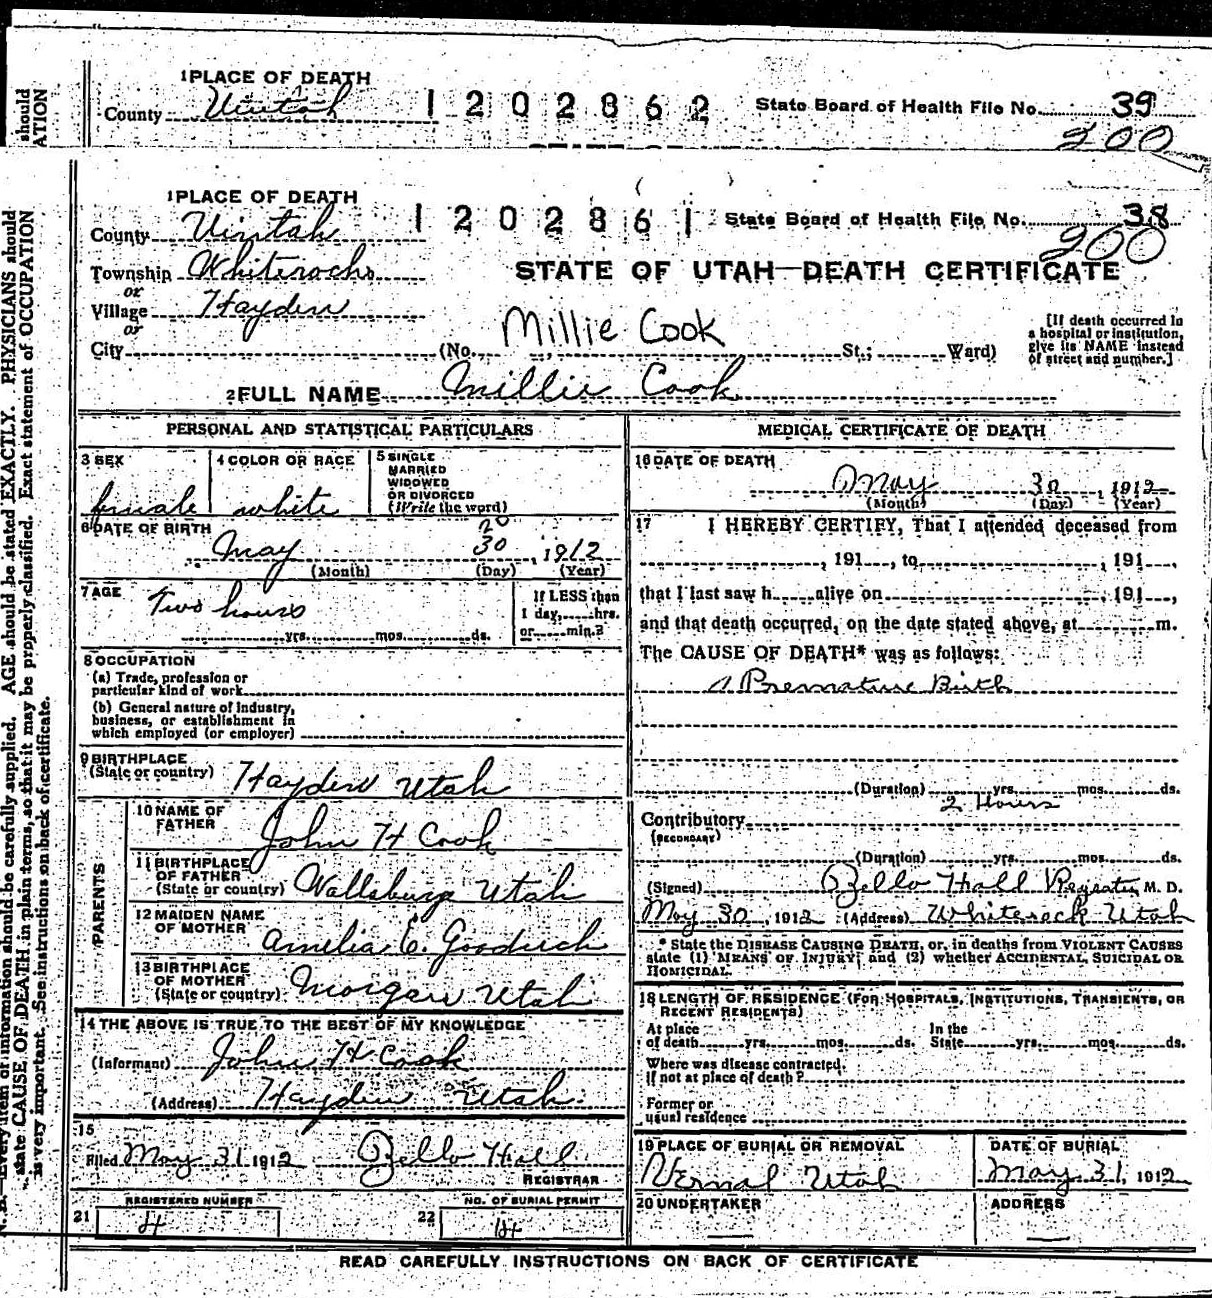 should
ATION
1 PLACE OF DEATH
County Uintah
1202862
State Board of Health File No. 39
200
1 PLACE OF DEATH
County Uintah
1202861
State Board of Health File No. 38
200
Township Whiterocks
or
Village Hayden
or
City (No. St.; Ward)
STATE OF UTAH—DEATH CERTIFICATE
Millie Cook
[If death occurred in
a hospital or institution,
give its NAME instead
of street and number.]
2 FULL NAME Millie Cook
PERSONAL AND STATISTICAL PARTICULARS
3 SEX
female
4 COLOR OR RACE
white
5 SINGLE
MARRIED
WIDOWED
OR DIVORCED
(Write the word)
6 DATE OF BIRTH
20
May 30, 1912
(Month) (Day) (Year)
7 AGE
Two hours
yrs. mos. ds.
If LESS than
1 day, hrs.
or min.?
8 OCCUPATION
(a) Trade, profession or
particular kind of work
(b) General nature of industry,
business, or establishment in
which employed (or employer)
9 BIRTHPLACE
(State or country) Hayden Utah
PARENTS
10 NAME OF
FATHER John H Cook
11 BIRTHPLACE
OF FATHER
(State or country) Wallsburg Utah
12 MAIDEN NAME
OF MOTHER Amelia E. Goodrich
13 BIRTHPLACE
OF MOTHER
(State or country) Morgan Utah
14 THE ABOVE IS TRUE TO THE BEST OF MY KNOWLEDGE
(Informant) John H Cook
(Address) Hayden Utah
15
Filed May 31 1912 Bello Hall
REGISTRAR
REGISTERED NUMBER
21 4
NO. OF BURIAL PERMIT
22 4
MEDICAL CERTIFICATE OF DEATH
16 DATE OF DEATH
May 30, 1912
(Month) (Day) (Year)
17 I HEREBY CERTIFY, That I attended deceased from
, 191 , to , 191 ,
that I last saw h alive on , 191 ,
and that death occurred, on the date stated above, at m.
The CAUSE OF DEATH* was as follows:
Premature Birth
(Duration) yrs. mos. ds.
2 Hours
Contributory
(SECONDARY)
(Duration) yrs. mos. ds.
(Signed) Bello Hall M. D.
May 30, 1912 (Address) Whiterock Utah
* State the DISEASE CAUSING DEATH, or, in deaths from VIOLENT CAUSES
state (1) MEANS OF INJURY; and (2) whether ACCIDENTAL, SUICIDAL OR
HOMICIDAL.
18 LENGTH OF RESIDENCE (FOR HOSPITALS, INSTITUTIONS, TRANSIENTS, OR
RECENT RESIDENTS)
At place
of death yrs. mos. ds.
In the
State yrs. mos. ds.
Where was disease contracted,
If not at place of death?
Former or
usual residence
19 PLACE OF BURIAL OR REMOVAL
Vernal Utah
DATE OF BURIAL
May 31, 1912
20 UNDERTAKER
ADDRESS
READ CAREFULLY INSTRUCTIONS ON BACK OF CERTIFICATE
N. B.—Every item of information should be carefully supplied. AGE should be stated EXACTLY. PHYSICIANS should
state CAUSE OF DEATH in plain terms, so that it may be properly classified. Exact statement of OCCUPATION
is very important. See instructions on back of certificate.